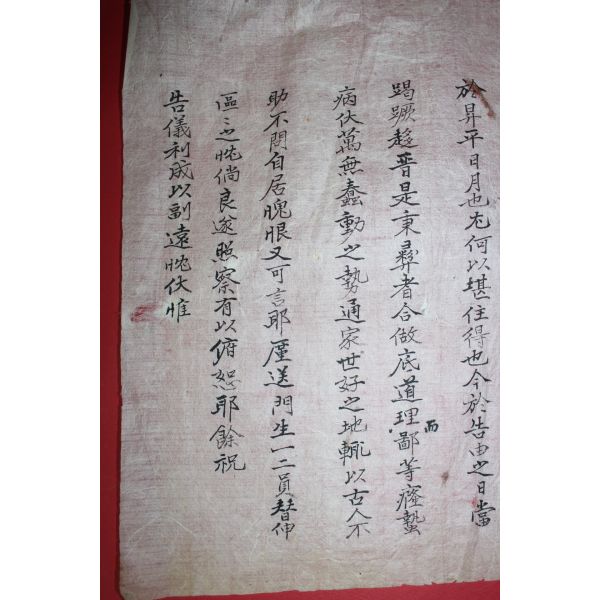 於昇平日月也尤何以堪住得也今於告由之日當
竭蹶趍晋是秉彛者合做底道理而鄙等癃蟄
病伏萬無蠢動之勢通家世好之地輒以古人不
助不問自居愧恨又可言耶厪送門生一二員替伸
區〻之忱倘良遂照察有以俯恕耶餘祝
告儀利成以副遠忱伏惟